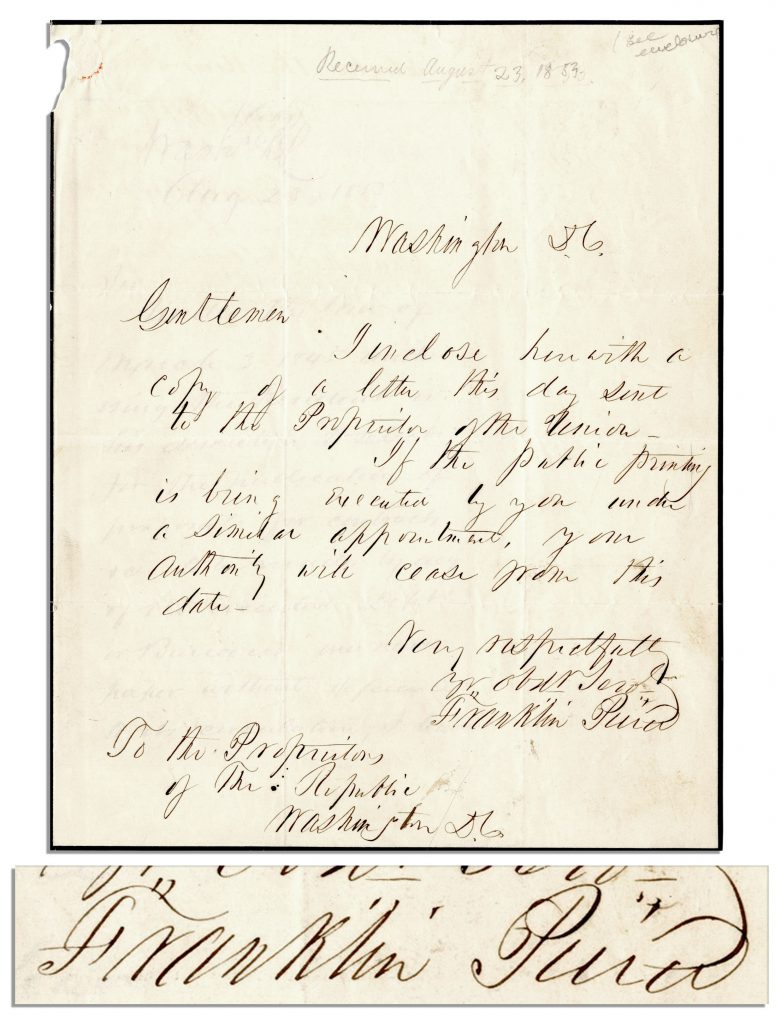 (see
enclosure
Received August 23, 1853.
Washington D.C.
Gentlemen
I inclose herewith a
copy of a letter this day sent
to the Proprietor of the Union—
If the public printing
is being executed by you under
a similar appointment, your
authority will cease from this
date—
Very respectfully
Yr. Obdt Servt
Franklin Pierce
To the Proprietors
of The Republic
Washington D.C.
Franklin Pierce